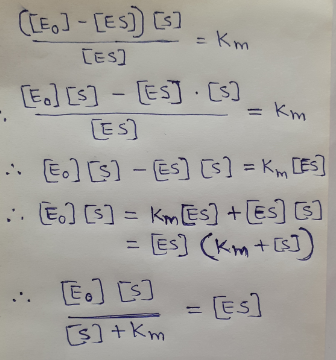 ([E₀] - [ES]) [S] / [ES] = Km
∴ [E₀] [S] - [ES] · [S] / [ES] = Km
∴ [E₀] [S] - [ES] [S] = Km [ES]
∴ [E₀] [S] = Km[ES] + [ES] [S]
= [ES] (Km + [S])
∴ [E₀] [S] / [S] + Km = [ES]